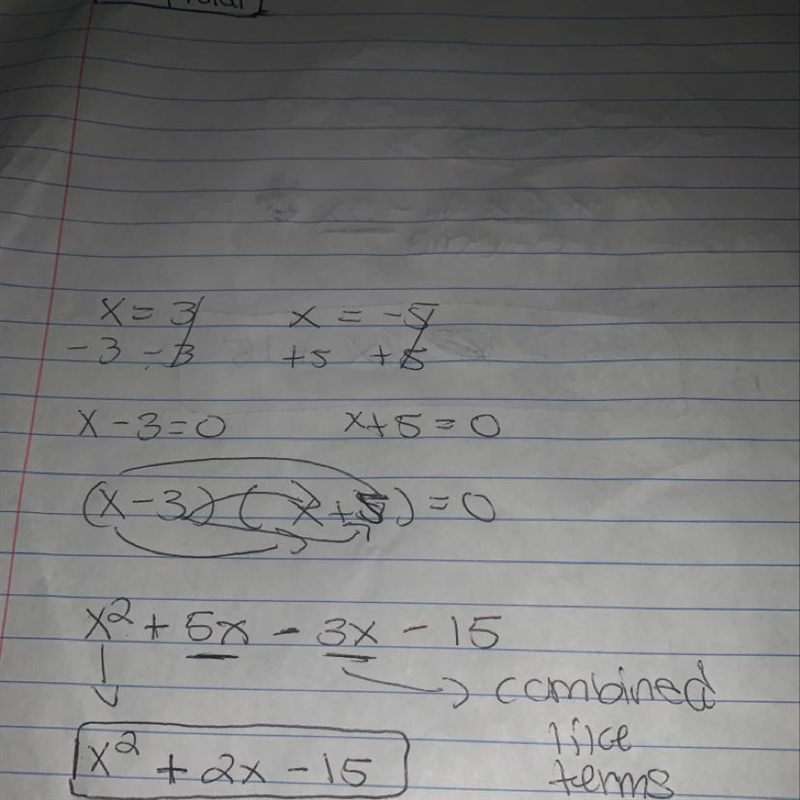 x = 3 x = -5
-3 -3 +5 +5
x - 3 = 0 x + 5 = 0
(x - 3) (x + 5) = 0
x² + 5x - 3x - 15
combined
like
terms
x² + 2x - 15